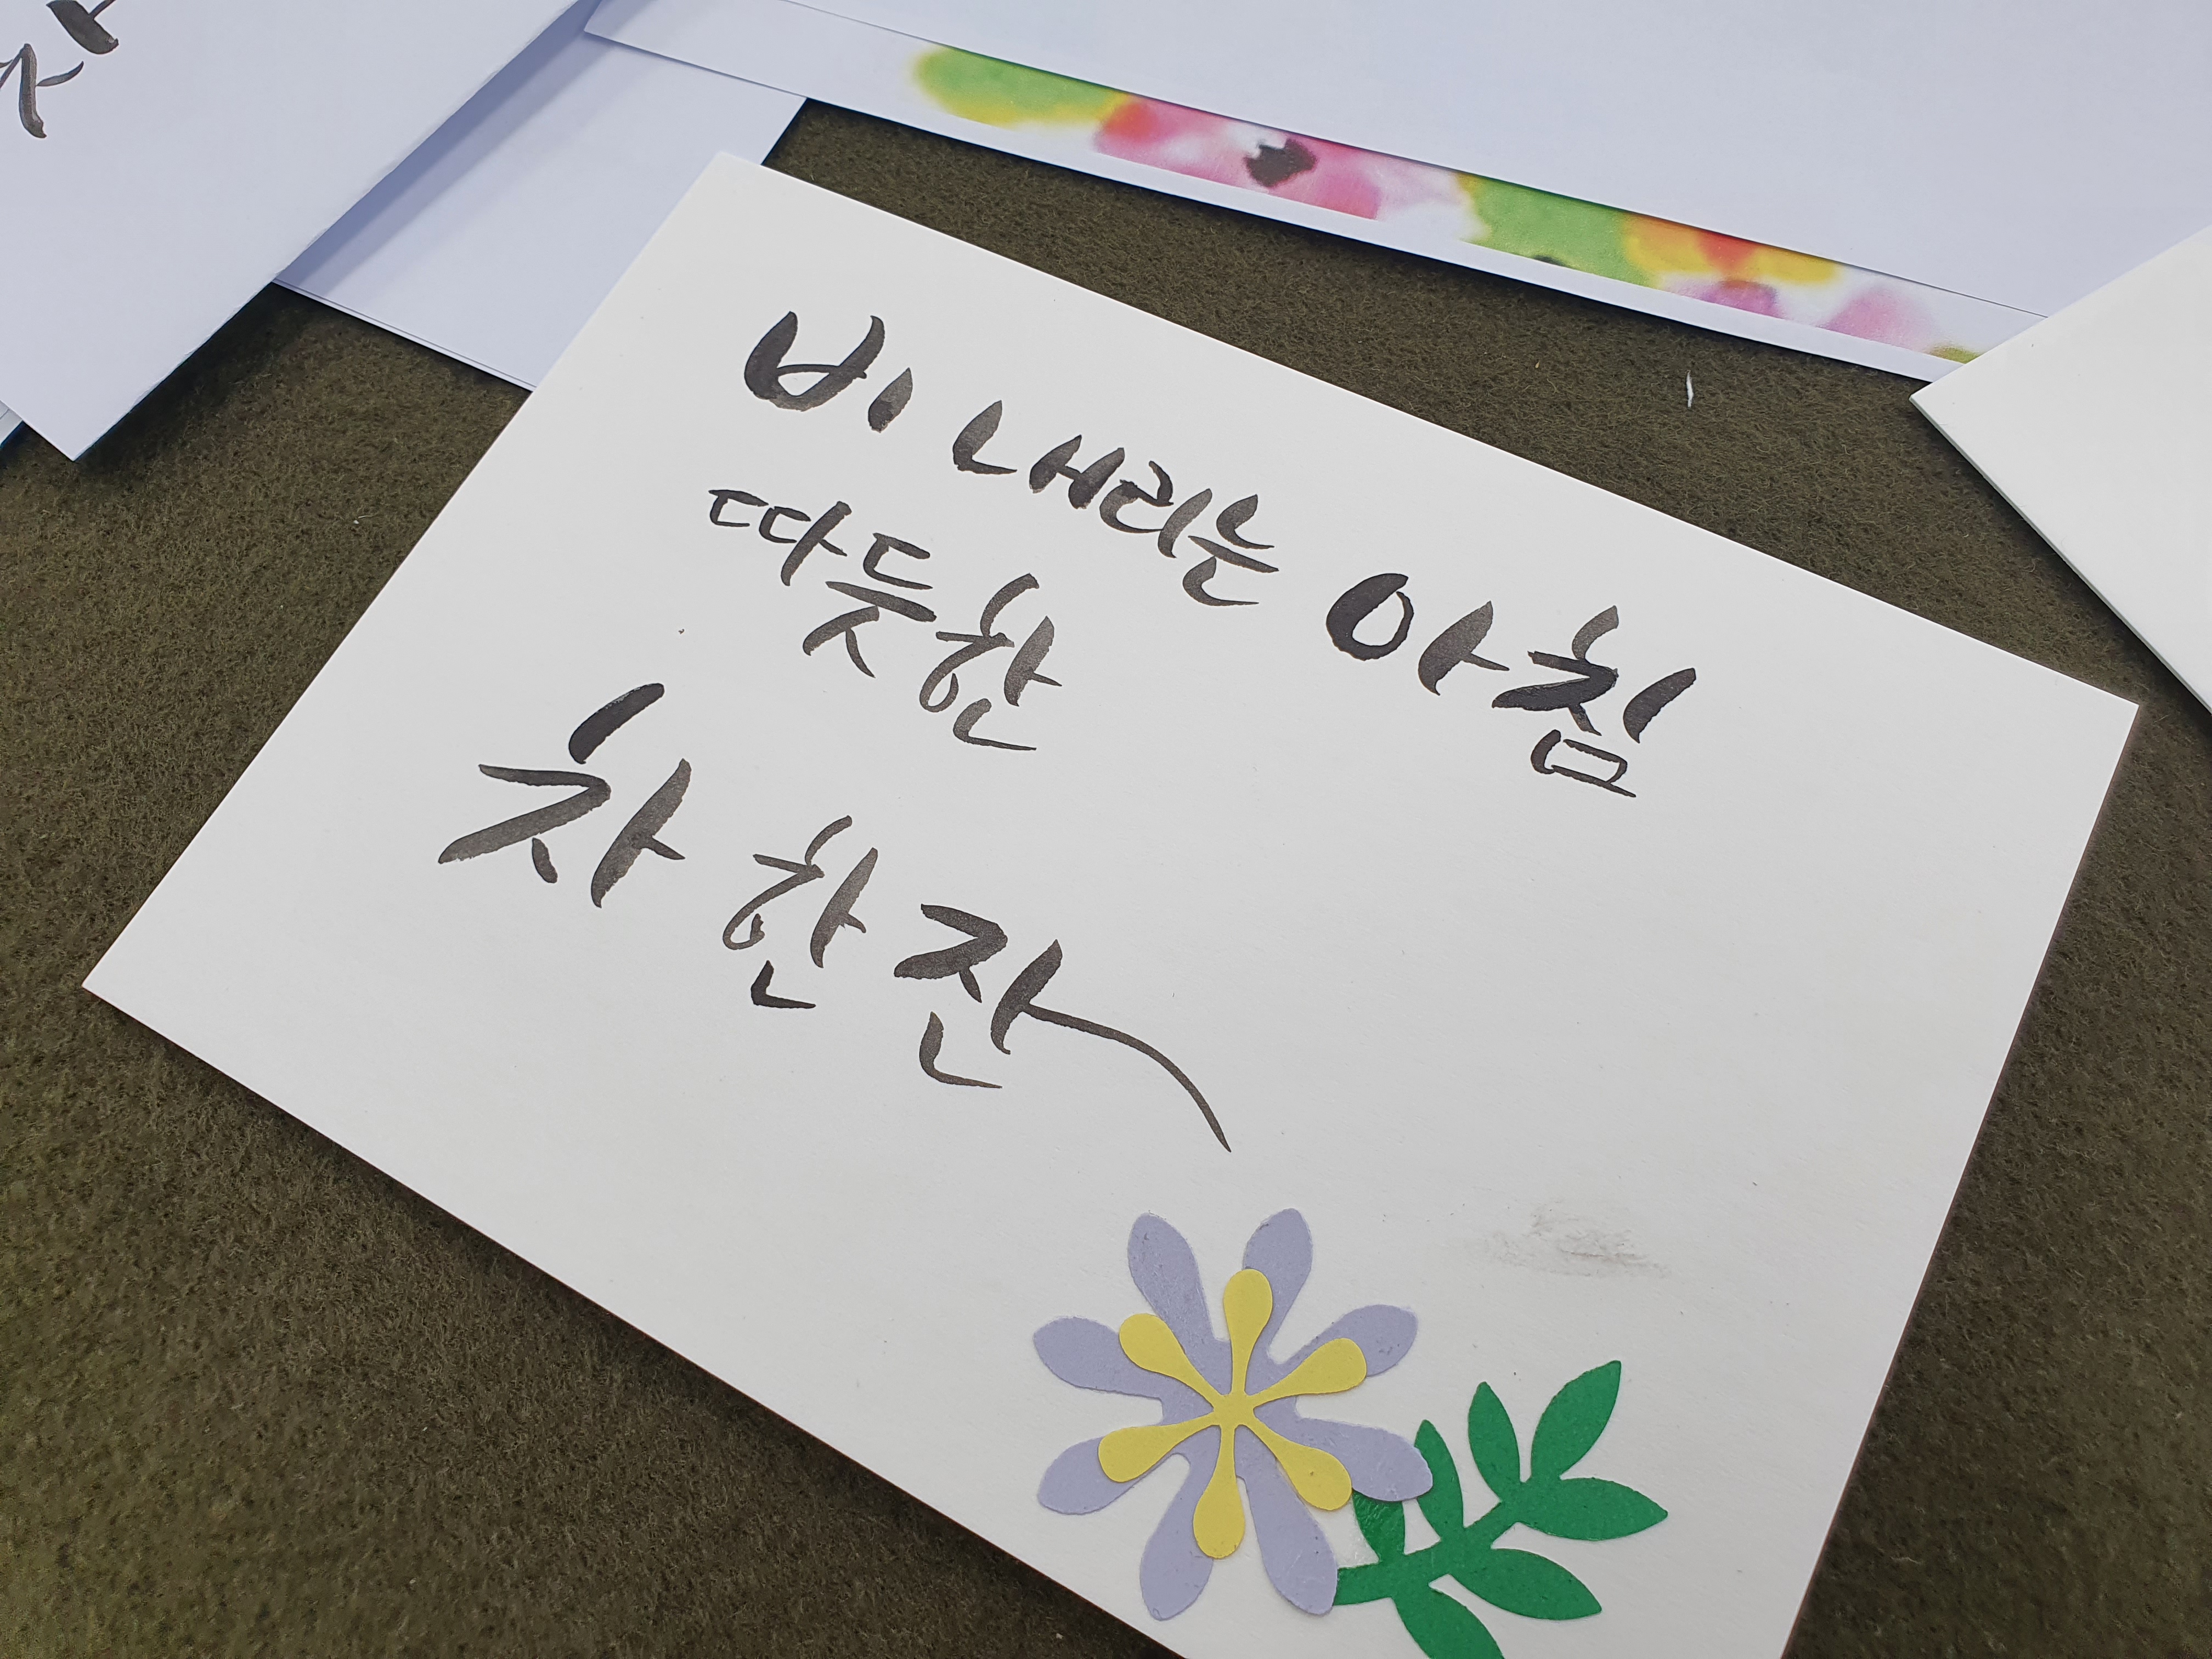 비 내리는 아침
따듯한
차 한잔